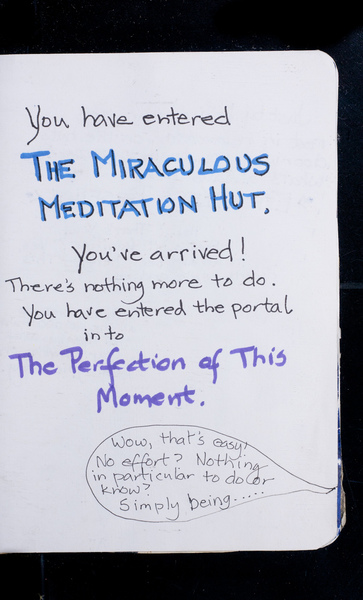 You have entered
THE MIRACULOUS
MEDITATION HUT.
You've arrived!
There's nothing more to do.
You have entered the portal
in to
The Perfection of This
Moment.
Wow, that's easy!
No effort? Nothing
in particular to do or
know?
Simply being.....